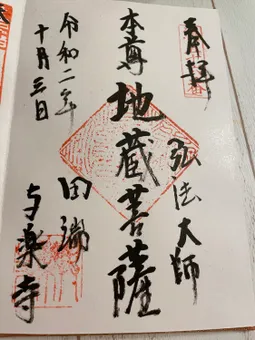 奉拝
弘法大師
本尊地蔵菩薩
令和二年
十月三日
田端
与楽寺